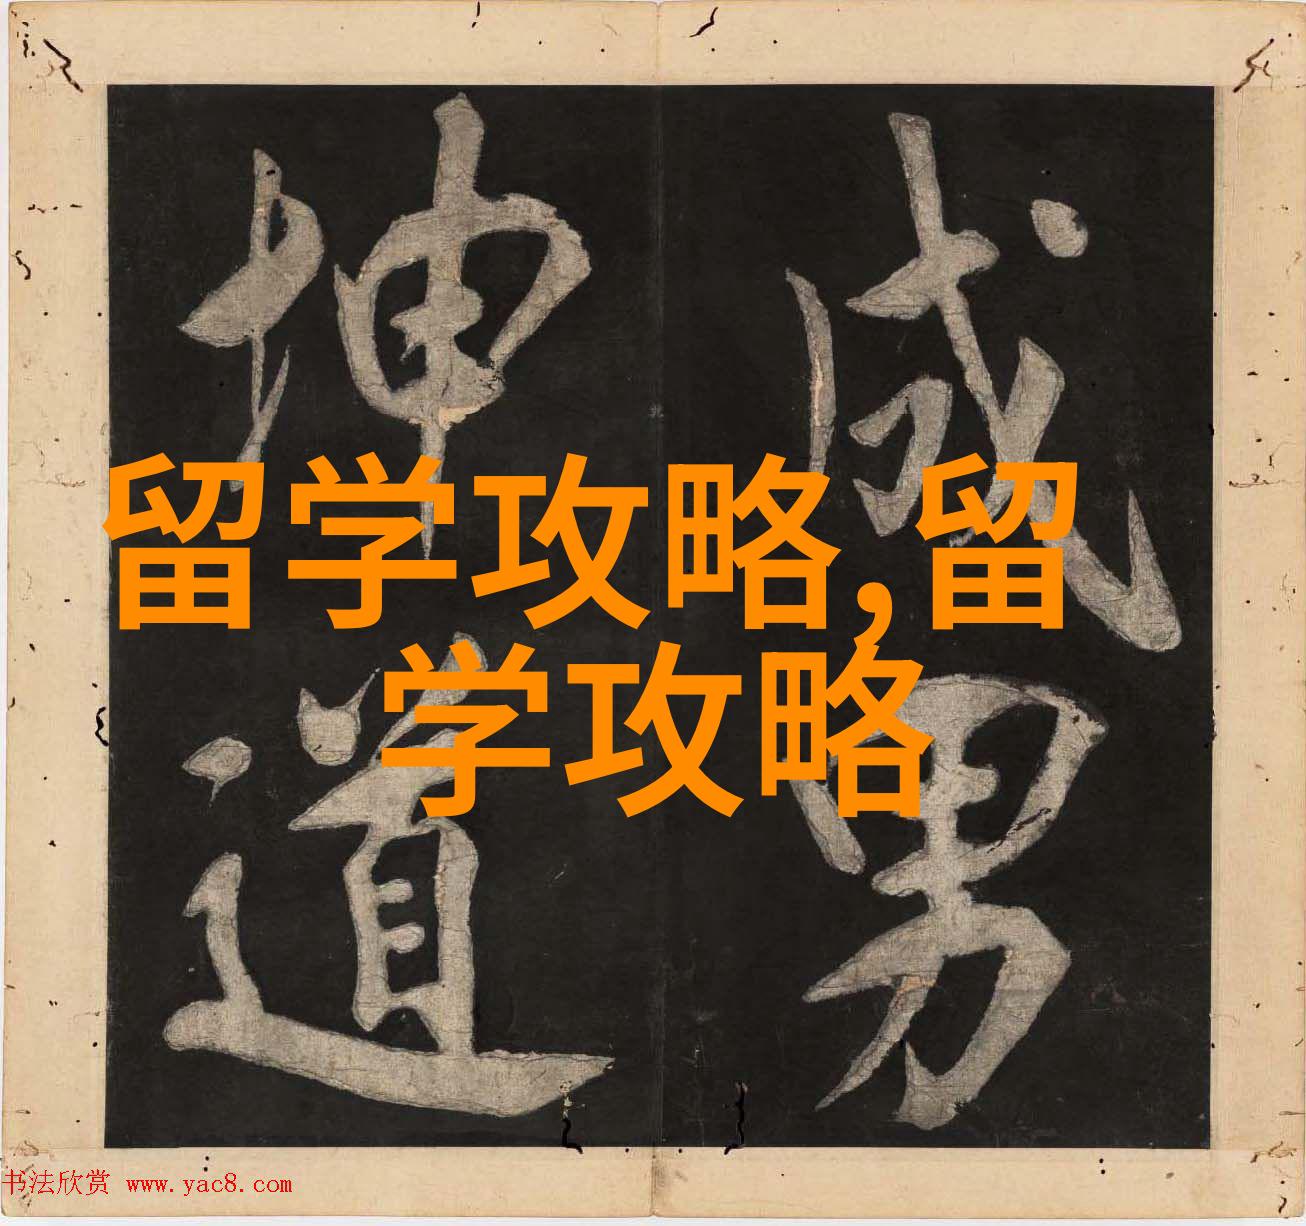 成男
坤道
留学攻略,留
学攻略
书法欣赏 www.yac8.com